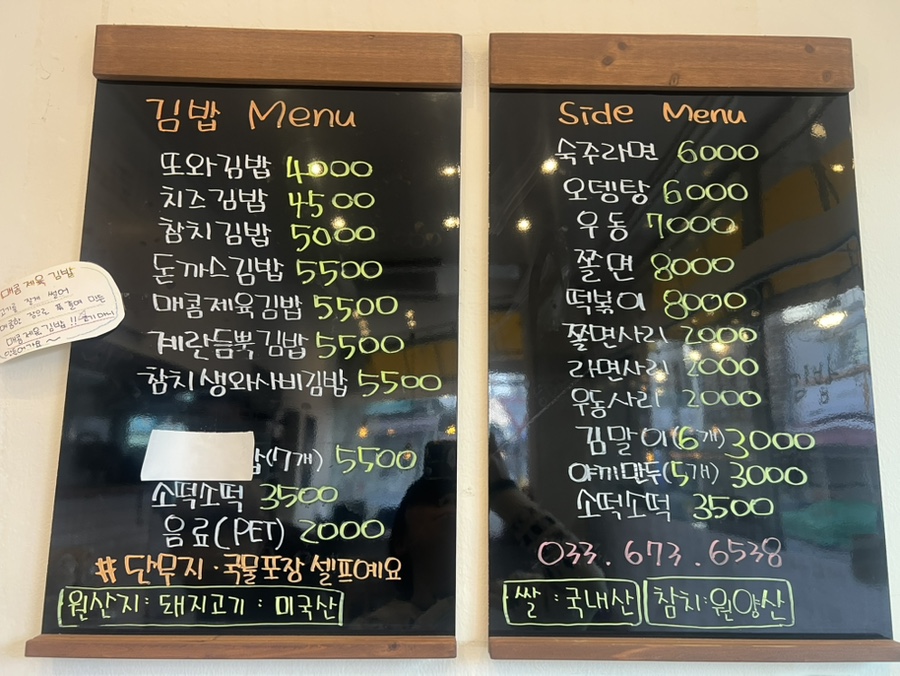 김밥 Menu
또와김밥 4000
치즈김밥 4500
참치김밥 5000
돈까스김밥 5500
매콤제육김밥 5500
계란듬뿍김밥 5500
참치생와사비김밥 5500
(7개) 5500
소떡소떡 3500
음료(PET) 2000
# 단무지·국물포장 셀프예요
원산지: 돼지고기 : 미국산
Side Menu
숙주라면 6000
오뎅탕 6000
우동 7000
쫄면 8000
떡볶이 8000
쫄면사리 2000
라면사리 2000
우동사리 2000
김말이(6개) 3000
야끼만두(5개) 3000
소떡소떡 3500
033.673.6538
쌀 : 국내산
참치:원양산
매콤제육김밥
잘게 썰어
매콤제육김밥!!